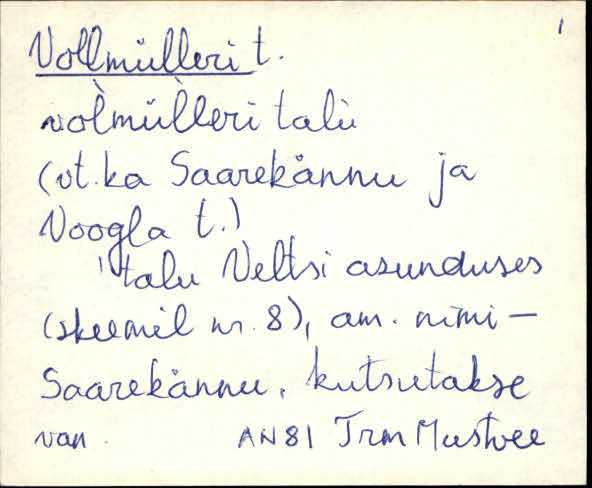 1
Vollmülleri t.
vol̀mül̀leri talù
(vt. ka Saarekännu ja
Voogla t.)
'talu Veltsi asunduses
(skeemil nr. 8), am. nimi –
Saarekännu, kutsutakse
van. AN 81 Trm Mustvee